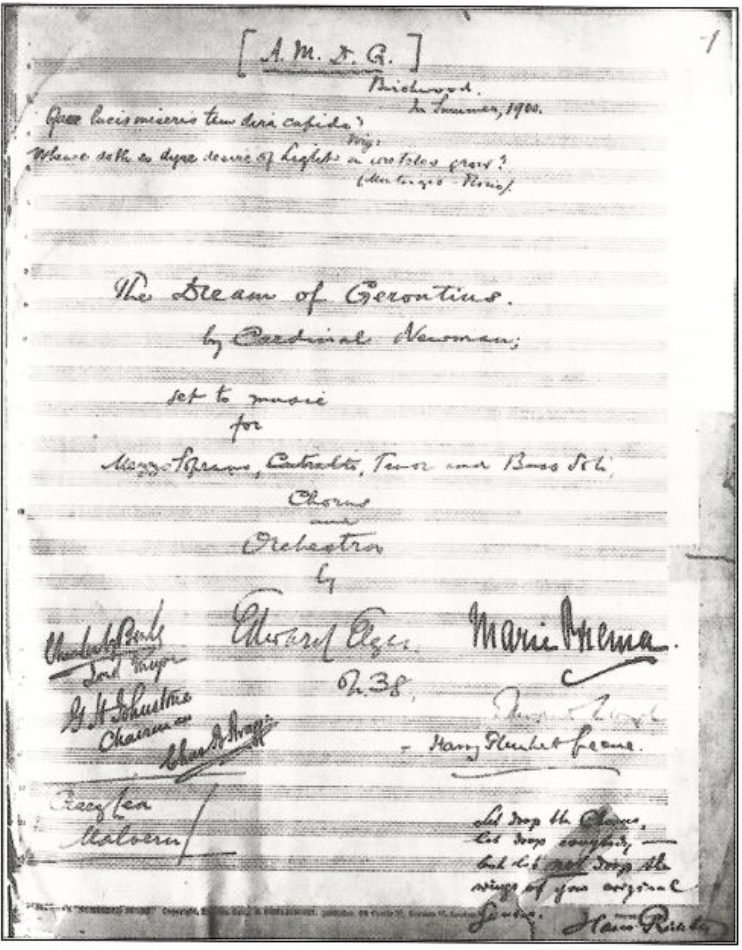 1
[A. M. D. G.]
Birchwood.
In Summer, 1900.
Quae lucis miseris tam dira cupido?
Virg:
Whence doth so dyre desire of Light on wretches grow?
(Montaigne - Florio).
The Dream of Gerontius.
by Cardinal Newman;
set to music
for
Mezzo Soprano, Contralto, Tenor and Bass Soli,
Chorus
and
Orchestra
by
Edward Elgar.
Op. 38.
Lord Mayor
G H Johnstone
Chairman
Craeg Lea
Malvern
Marie Brema.
Harry Plunket Greene.
Let drop the Chorus,
let drop everybody —
but let not drop the
wings of your original
genius.
Hans Richter